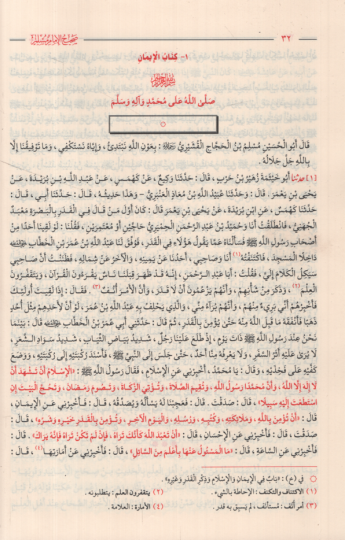 ٣٢
١- كتاب الإيمان
صلى الله على محمد وآله وسلم
قال أبو الحسين مسلم بن الحجاج القشيري : بعون الله نبتدئ، وإياه نستكفي، وما توفيقنا إلا
بالله جل جلاله.
[١] حدثنا أبو خيثمة زهير بن حرب، قال: حدثنا وكيع، عن كهمس، عن عبد الله بن بريدة، عن
يحيى بن يعمر، قال: وحدثنا عبيد الله بن معاذ العنبري - وهذا حديثه -، قال: حدثنا أبي، قال:
حدثنا كهمس، عن ابن بريدة، عن يحيى بن يعمر قال: كان أول من قال في القدر بالبصرة معبد
الجهني، فانطلقت أنا وحميد بن عبد الرحمن الحميري حاجين أو معتمرين، فقلنا: لو لقينا أحدا من
أصحاب رسول الله ﷺ فسألناه عما يقول هؤلاء في القدر، فوفق لنا عبد الله بن عمر بن الخطاب
داخلا المسجد، فاكتنفته(١) أنا وصاحبي، أحدنا عن يمينه، والآخر عن شماله، فظننت أن صاحبي
سيكل الكلام إلي، فقلت: أبا عبد الرحمن، إنه قد ظهر قبلنا ناس يقرءون القرآن، ويتقفرون
العلم(٢)، وذكر من شأنهم، وأنهم يزعمون أن لا قدر، وأن الأمر أنف(٣)، فقال: إذا لقيت أولئك
فأخبرهم أني بريء منهم، وأنهم برآء مني، والذي يحلف به عبد الله بن عمر، لو أن لأحدهم مثل أحد
ذهبا فأنفقه ما قبل الله منه حتى يؤمن بالقدر، ثم قال: حدثني أبي عمر بن الخطاب قال: بينما
نحن عند رسول الله ﷺ ذات يوم، إذ طلع علينا رجل، شديد بياض الثياب، شديد سواد الشعر،
لا يرى عليه أثر السفر، ولا يعرفه منا أحد، حتى جلس إلى النبي ﷺ، فأسند ركبتيه إلى ركبتيه، ووضع
كفيه على فخذيه، وقال: يا محمد، أخبرني عن الإسلام، فقال رسول الله ﷺ: «الإسلام أن تشهد أن
لا إله إلا الله، وأن محمدا رسول الله، وتقيم الصلاة، وتؤتي الزكاة، وتصوم رمضان، وتحج البيت إن
استطعت إليه سبيلا»، قال: صدقت. قال: فعجبنا له يسأله ويصدقه، قال: فأخبرني عن الإيمان،
قال: «أن تؤمن بالله، وملائكته، وكتبه، ورسله، واليوم الآخر، وتؤمن بالقدر خيره وشره»، قال:
صدقت، قال: فأخبرني عن الإحسان، قال: «أن تعبد الله كأنك تراه، فإن لم تكن تراه فإنه يراك»، قال:
فأخبرني عن الساعة، قال: «ما المسئول عنها بأعلم من السائل»، قال: فأخبرني عن أمارتها(٤)، قال:
في (خ): «باب في الإيمان والإسلام وذكر القدر وغيره».
(١) الاكتناف والتكنف: الإحاطة بالشيء.
(٢) يتقفرون العلم: يتطلبونه.
(٣) أمر أنف: مستأنف، لم يسبق به قدر.
(٤) الأمارة: العلامة.